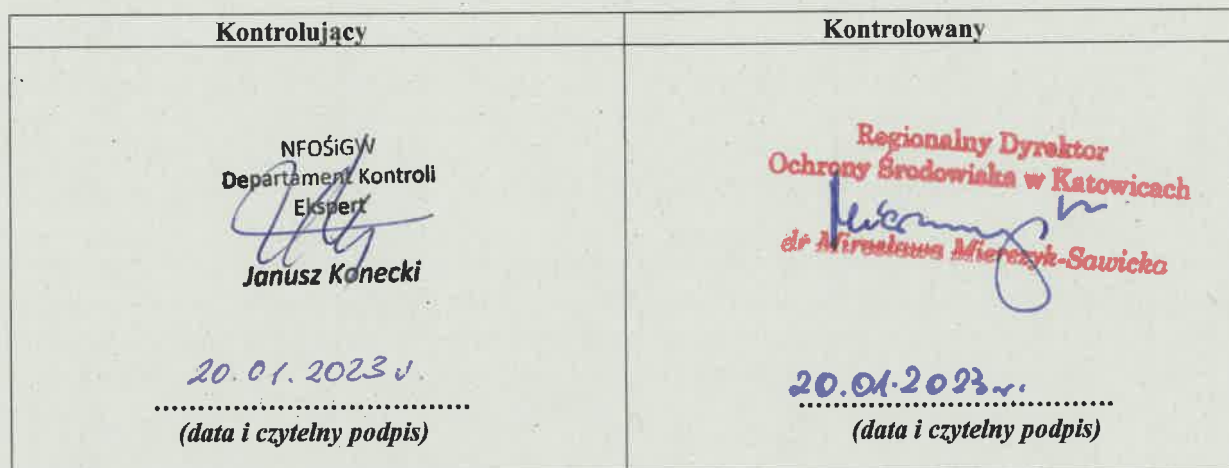 Kontrolujący
NFOŚiGW
Departament Kontroli
Ekspert
Janusz Konecki
20.01.2023 r.
(data i czytelny podpis)
Kontrolowany
Regionalny Dyrektor
Ochrony Środowiska w Katowicach
dr Mirosława Mierczyk-Sawicka
20.01.2023 r.
(data i czytelny podpis)